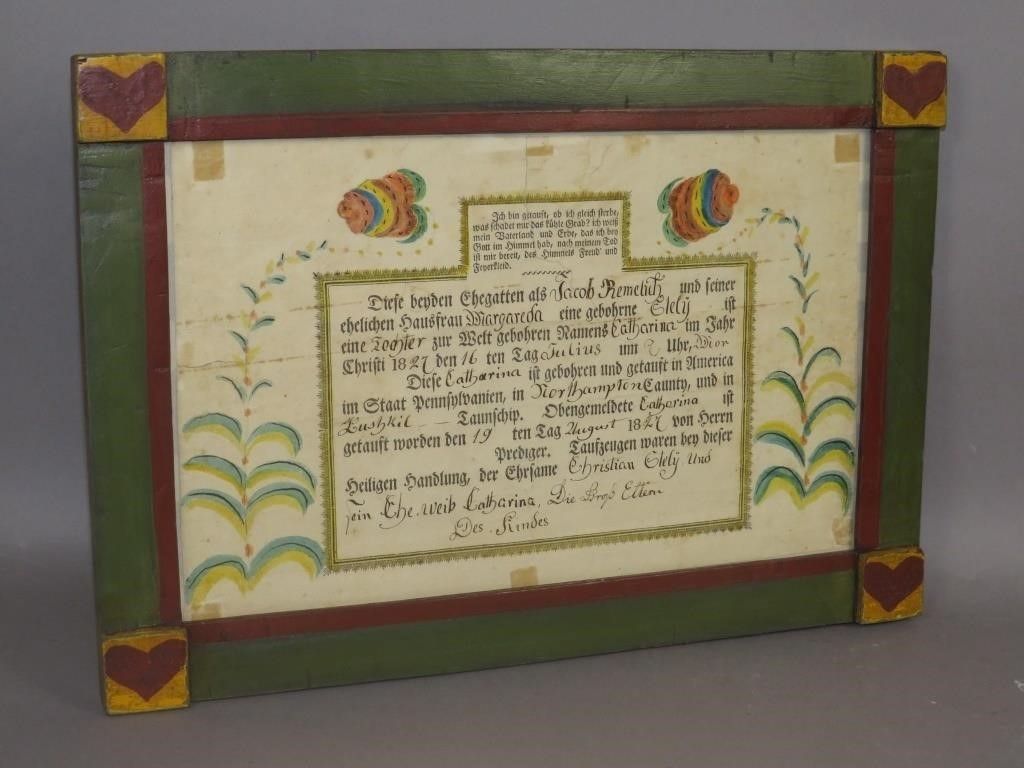 Ich bin getauft, ob ich gleich sterbe,
was schadet mir das kühle Grab? ich weiß
mein Vaterland und Erbe, das ich bey
Gott im Himmel hab, nach meinem Tod
ist mir bereit, des Himmels Freud' und
Feyerkleid.
Diese beyden Ehegatten als Jacob Remelich und seiner
ehelichen Hausfrau Margareda eine gebohrne Slelÿ ist
eine Tochter zur Welt gebohren Namens Catharina im Jahr
Christi 1827 den 16 ten Tag Julius um Uhr,
Diese Catharina ist gebohren und getauft in America
im Staat Pennsylvanien, in Northampton Caunty, und in
Bushkil Taunschip. Obengemeldete Catharina ist
getauft worden den 19 ten Tag August 1827 von Herrn
Prediger. Taufzeugen waren bey dieser
Heiligen Handlung, der Ehrsame Christian Slelÿ Und
sein Ehe-weib Catharina, Die Groß Eltern
Des Kindes